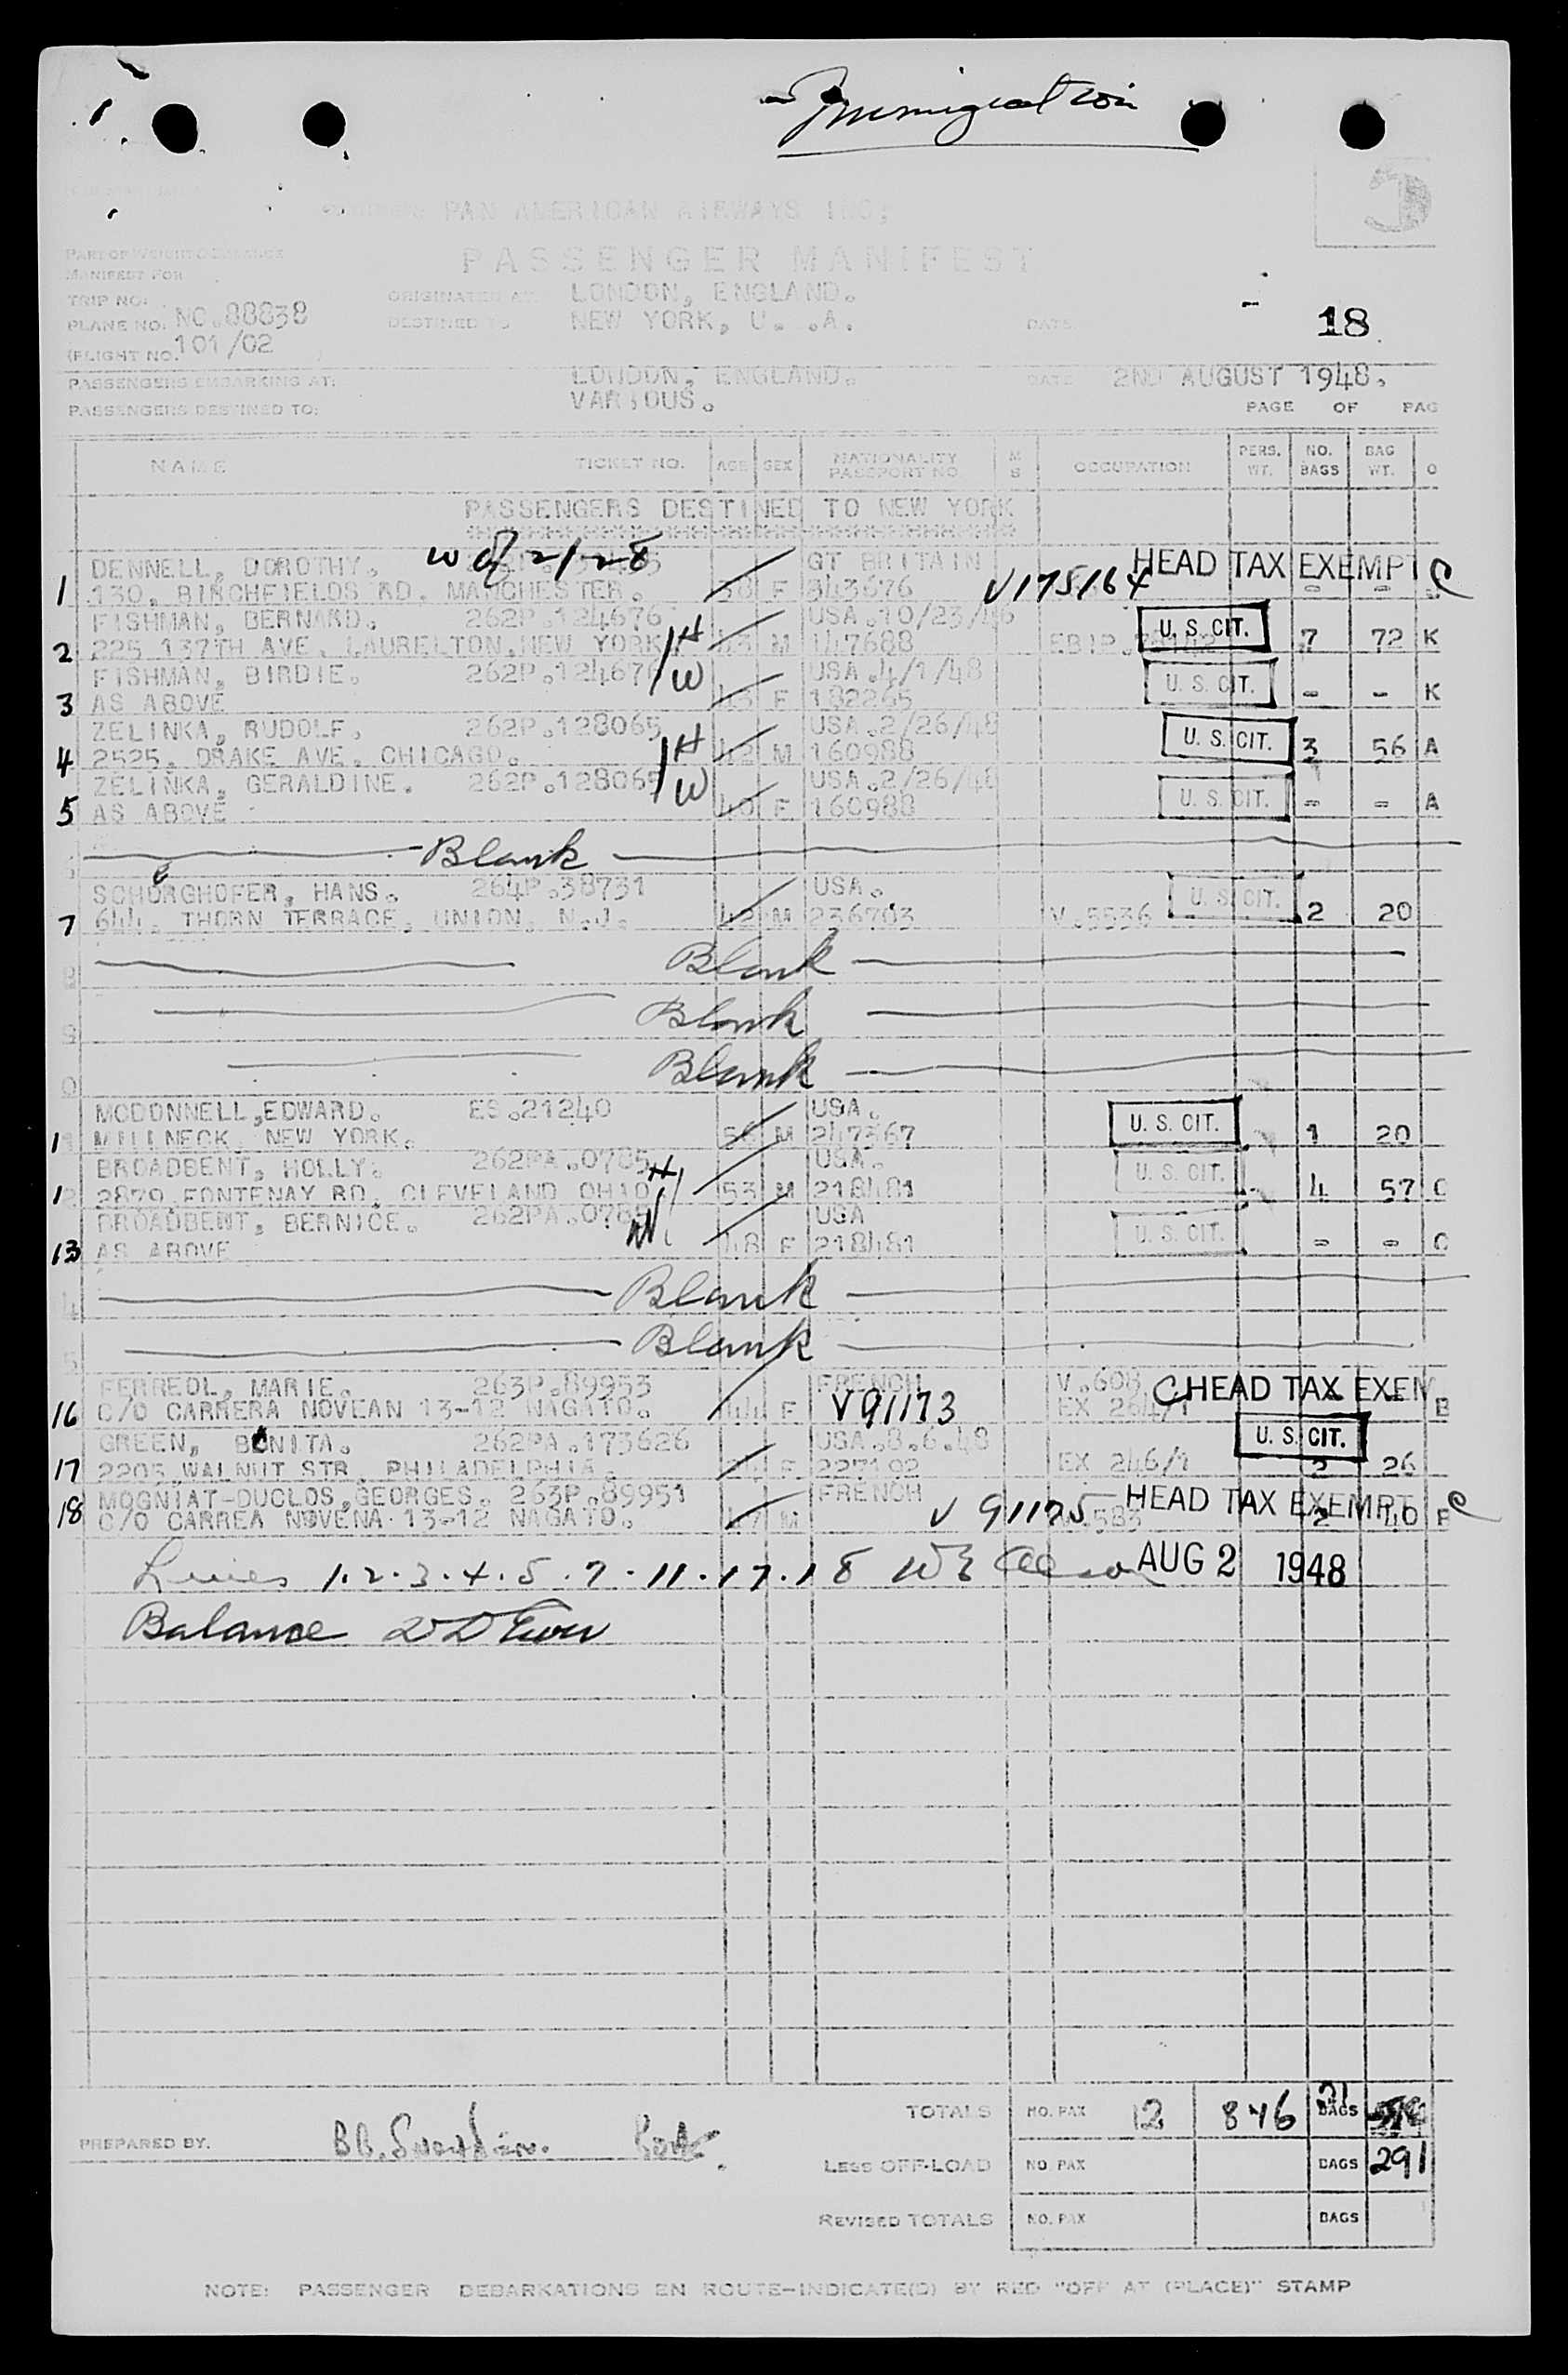 Immigration
PAN AMERICAN AIRWAYS INC;
PASSENGER MANIFEST
PART OF WEIGHT & BALANCE
MANIFEST FOR
TRIP NO:
PLANE NO. NC.88838
(FLIGHT NO. 101/02 )
ORIGINATED AT LONDON, ENGLAND.
DESTINED TO NEW YORK, U. .A.
DATE
18
PASSENGERS EMBARKING AT: LONDON, ENGLAND. DATE 2ND AUGUST 1948.
PASSENGERS DESTINED TO: VARIOUS.
PAGE OF PAG
NAME TICKET NO. AGE SEX NATIONALITY PASSPORT NO M S OCCUPATION PERS. WT. NO. BAGS BAG WT. O
PASSENGERS DESTINED TO NEW YORK
DENNELL, DOROTHY. GT BRITAIN HEAD TAX EXEMPT C
1 130, BIRCHFIELDS RD. MANCHESTER. 38 F 343676 V175164 - -
FISHMAN, BERNARD. 262P.124676 H USA.10/23/46 U. S. CIT.
2 225 137TH AVE. LAURELTON,NEW YORK 43 M 147688 7 72 K
FISHMAN, BIRDIE. 262P.124676 W USA.4/1/48 U. S. CIT.
3 AS ABOVE 43 F 182265 - - K
ZELINKA, RUDOLF. 262P.128065 H USA.2/26/48 U. S. CIT.
4 2525, DRAKE AVE. CHICAGO. 42 M 160988 3 56 A
ZELINKA, GERALDINE. 262P.128065 W USA.2/26/48 U. S. CIT.
5 AS ABOVE 40 F 160988 - - A
Blank
SCHORGHOFER, HANS. 264P.38731 USA. U. S. CIT.
7 644. THORN TERRACE, UNION, N.J. 42 M 236703 V.5536 2 20
8 Blank
9 Blank
0 Blank
MCDONNELL,EDWARD. ES.21240 USA. U. S. CIT.
11 MILLNECK, NEW YORK. 56 M 247367 1 20
BROADBENT, HOLLY. 262PA.0785 H USA. U. S. CIT.
12 2879,FONTENAY RD, CLEVELAND OHIO 53 M 218481 4 57 C
BROADBENT, BERNICE. 262PA.0785 W USA U. S. CIT.
13 AS ABOVE 48 F 218481 - - C
4 Blank
5 Blank
FERREOL, MARIE. 263P.89953 FRENCH V.608 C HEAD TAX EXEM
16 C/O CARRERA NOVEAN 13-12 NAGATO. 44 F V91173 EX 264/1 B
GREEN, BONITA. 262PA.173626 USA.8.6.48 U. S. CIT.
17 2205,WALNUT STR. PHILADELPHIA. F 227192 EX 246/1 2 26
MOGNIAT-DUCLOS,GEORGES. 263P.89951 FRENCH HEAD TAX EXEMPT C
18 C/O CARREA NOVENA 13-12 NAGATO. 47 M V 91175 583 2 40 B
Lines 1.2.3.4.5.7.11.17.18 AUG 2 1948
Balance
TOTALS NO. PAX 12 846 21 BAGS
PREPARED BY.
LESS OFF-LOAD NO. PAX BAGS 291
REVISED TOTALS NO. PAX BAGS
NOTE: PASSENGER DEBARKATIONS EN ROUTE-INDICATE(D) BY RED "OFF AT (PLACE)" STAMP